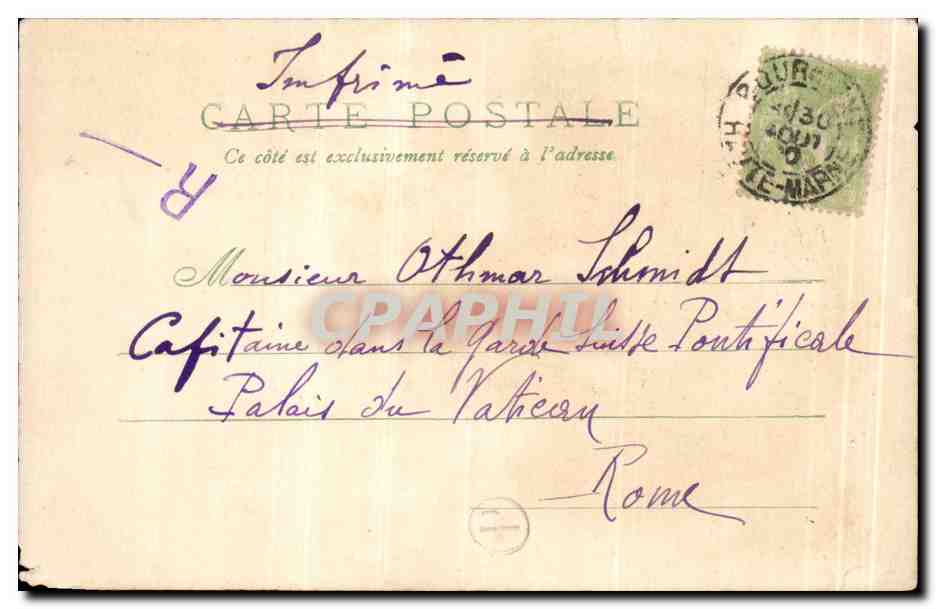 Imprimé
CARTE POSTALE
Ce côté est exclusivement réservé à l'adresse
R
Monsieur Othmar Schmidt
Capitaine dans la Garde Suisse Pontificale
Palais du Vatican
Rome
CPAPHIL
30
AOUT
HTE-MARNE